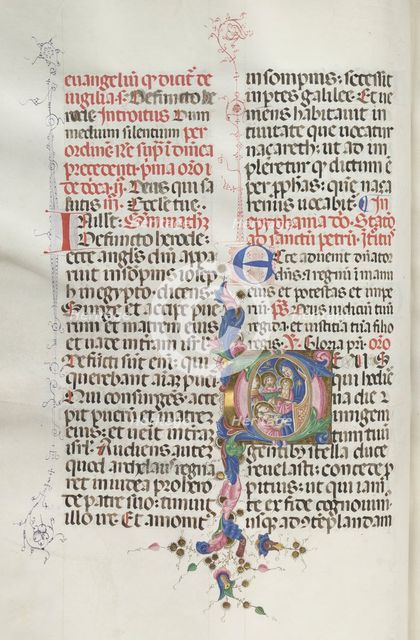 evangeliũ qđ dicit̃ ĩ
vigilia s. Defuncto he
rode Introitus Dum
medium silentium per
ordinem
precedenti pͥma oro
Deus qui sa
luti
In illo t̃.
Defuncto herode:
ecce angls dñi appa
ruit in sopnis ioseph
in egypto: dicens:
Surge et accipe pue
rum et matrem eius
et vade in tram isrl.
Defuncti sũt eni: qui
querebant aiaȝ pueri
Qui consurgens: acce
pit puerũ et matrez
eius: et venit in trã
isrl. Audiens autez
quod archelaus regna
ret in iudea pro hero
de patre suo: timuit
illo ire. Et amonit̃
in sompnis: secessit
in ptes galilee. Et ve
niens habitavit in
civitate que vocatur
nazareth: ut ad im
pleretur qđ dictum ẽ
per pphas: que naza
renus vocabit̃. In
epyphania dñi. Statõ
ad sanctũ petrũ. Itroit̃
Ecce advenit dñator
dñs: et regnũ in manu
eius et potestas et impe
rium. ps. Deus iudiciũ tuũ
regi da: et iusticiã tuã filio
regis. Gloria pri. oro
qui hodie
na die
unigeni
tum tuũ
gentibȝ stella duce
revelasti: concede p
pitius: ut qui iam
te ex fide cognovim̃
usqȝ ad cõtẽplandam